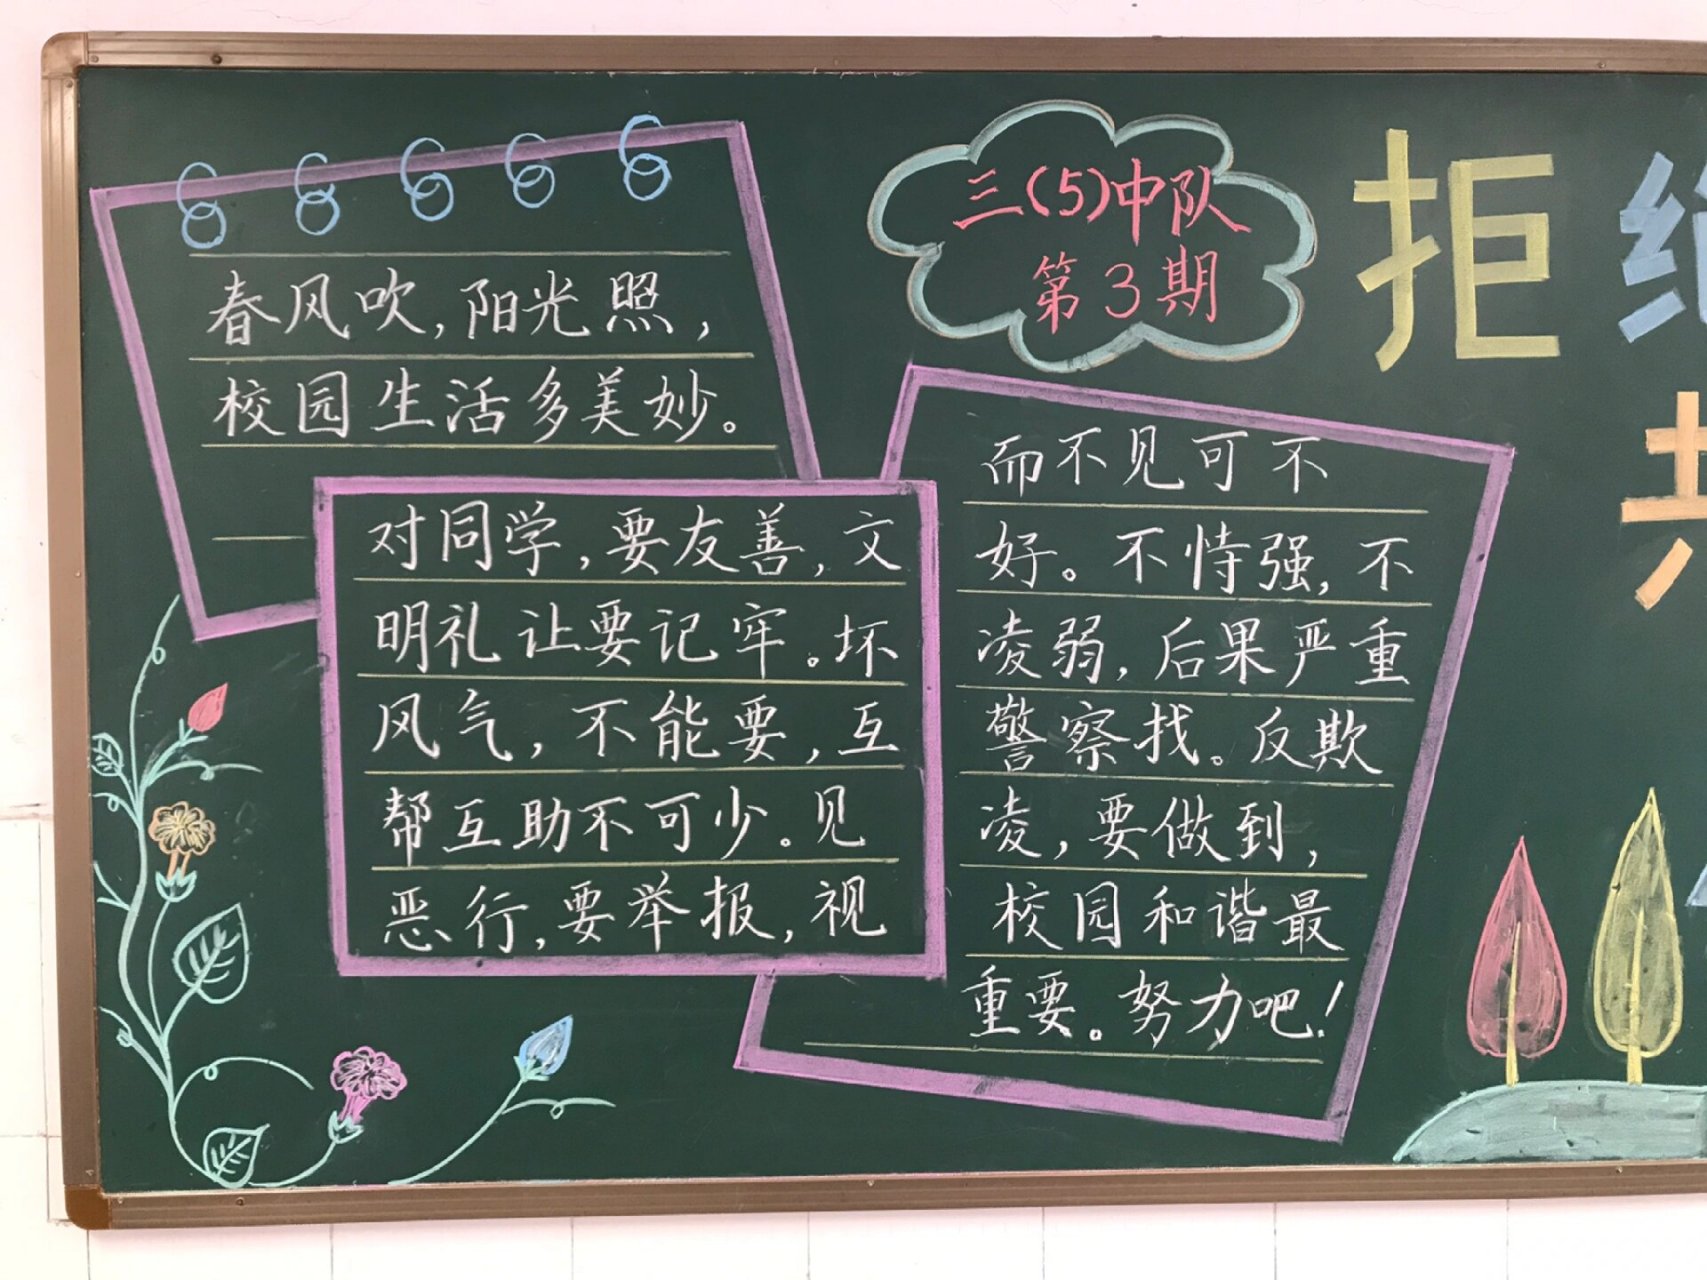 春风吹，阳光照，
校园生活多美妙。
对同学，要友善，文
明礼让要记牢。坏
风气，不能要，互
帮互助不可少。见
恶行，要举报，视
而不见可不
好。不恃强，不
凌弱，后果严重
警察找。反欺
凌，要做到，
校园和谐最
重要。努力吧！
三(5)中队
第3期
拒